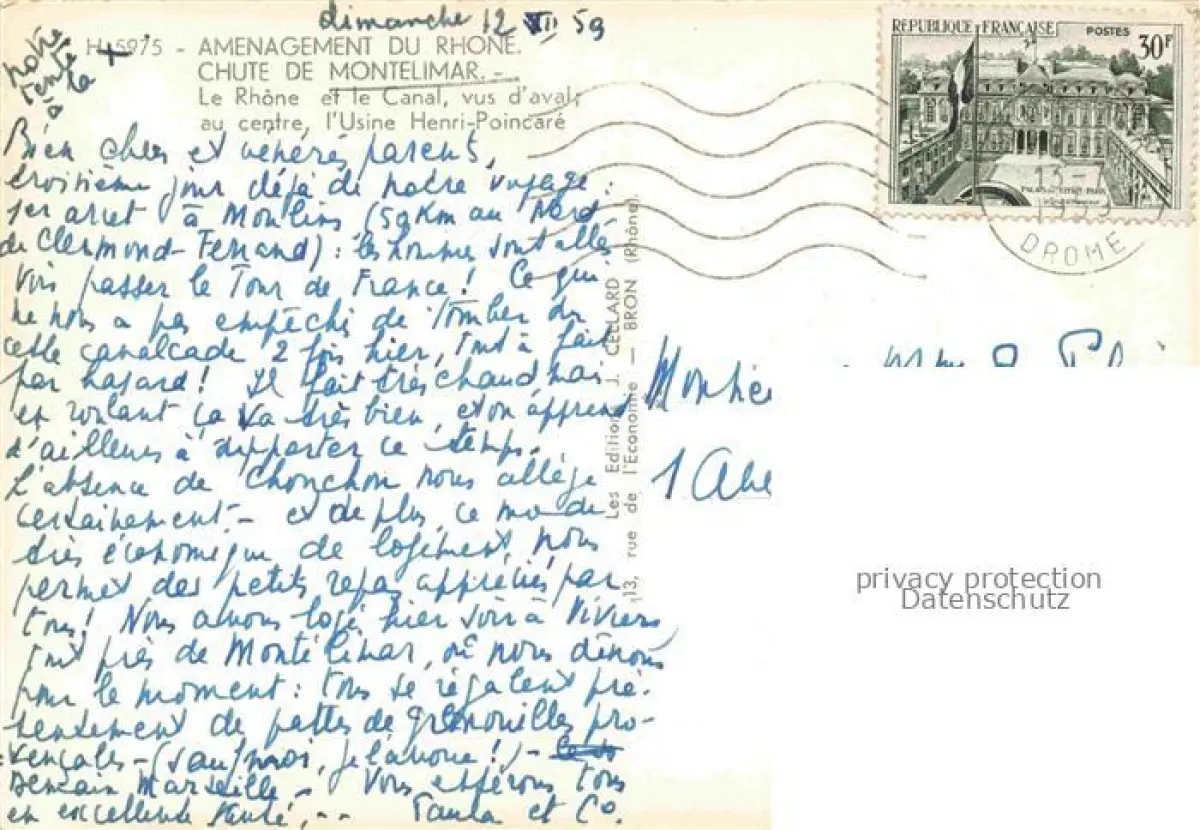 dimanche 12 VII 59
notre
tente
la
à
H 5975 - AMENAGEMENT DU RHONE.
CHUTE DE MONTELIMAR.-
Le Rhône et le Canal, vus d'aval;
au centre, l'Usine Henri-Poincaré
REPUBLIQUE FRANÇAISE POSTES 30F
13-7
DROME
Bien chers et vénérés parents,
troisième jour déjà de notre voyage:
1er arrêt à Moulins (59 Km au Nord
de Clermond-Ferrand): les hommes sont allés
voir passer le Tour de France! Ce qui
ne nous a pas empêché de tomber sur
cette cavalcade 2 fois hier, tout à fait
par hasard! Il fait très chaud, mais
en roulant ça va très bien, et on apprend
d'ailleurs à supporter ce temps.
L'absence de Chonchon nous allège
certainement - et de plus, ce mode
très économique de logement nous
permet des petits repas appréciés par
tous! Nous avons logé hier soir à Viviers,
tout près de Montélimar, où nous dînons
pour le moment: tous se régalent pré-
sentement de pattes de grenouilles pro-
vençales - (sauf moi, je l'avoue!) -
Demain Marseille - Vous espérons tous
en excellente santé, -- Paula et Co.
Les Editions J. CELLARD
13, rue de l'Economie — BRON (Rhône)
1 Abe
privacy protection
Datenschutz